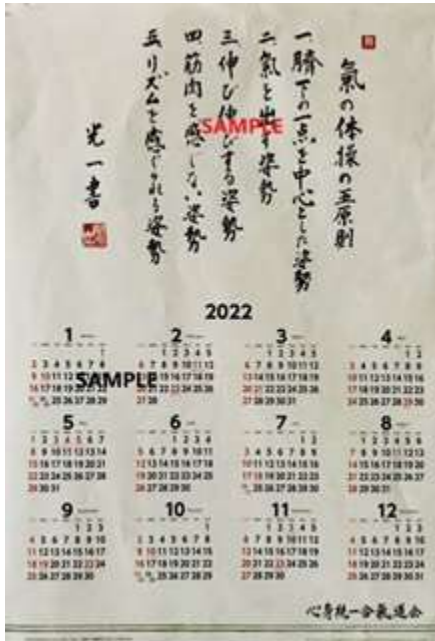 氣の体操の五原則
一、臍下の一点を中心とした姿勢
二、氣を出す姿勢
三、伸び伸びする姿勢
四、筋肉を感じない姿勢
五、リズムを感じられる姿勢
光一書
SAMPLE
2022
1
1
2 3 4 5 6 7 8
9 10
SAMPLE
16 17 18 19 20 21 22
25 26 27 28 29
2
1 2 3 4 5
6 7 8 9 10 11 12
13 14 15 16 17 18 19
20 21 22 23 24 25 26
27 28
3
1 2 3 4 5
6 7 8 9 10 11 12
13 14 15 16 17 18 19
20 21 22 23 24 25 26
27 28 29 30 31
4
1 2
3 4 5 6 7 8 9
10 11 12 13 14 15 16
17 18 19 20 21 22 23
24 25 26 27 28 29 30
5
1 2 3 4 5 6 7
8 9 10 11 12 13 14
15 16 17 18 19 20 21
22 23 24 25 26 27 28
29 30 31
6
1 2 3 4
5 6 7 8 9 10 11
12 13 14 15 16 17 18
19 20 21 22 23 24 25
26 27 28 29 30
7
1 2
3 4 5 6 7 8 9
10 11 12 13 14 15 16
17 18 19 20 21 22 23
25 26 27 28 29 30
8
1 2 3 4 5 6
7 8 9 10 11 12 13
14 15 16 17 18 19 20
21 22 23 24 25 26 27
28 29 30 31
9
1 2 3
4 5 6 7 8 9 10
11 12 13 14 15 16 17
18 19 20 21 22 23 24
25 26 27 28 29 30
10
1
2 3 4 5 6 7 8
9 10 11 12 13 14 15
16 17 18 19 20 21 22
25 26 27 28 29
11
1 2 3 4 5
6 7 8 9 10 11 12
13 14 15 16 17 18 19
20 21 22 23 24 25 26
27 28 29 30
12
1 2 3
4 5 6 7 8 9 10
11 12 13 14 15 16 17
18 19 20 21 22 23 24
25 26 27 28 29 30 31
心身統一合氣道会